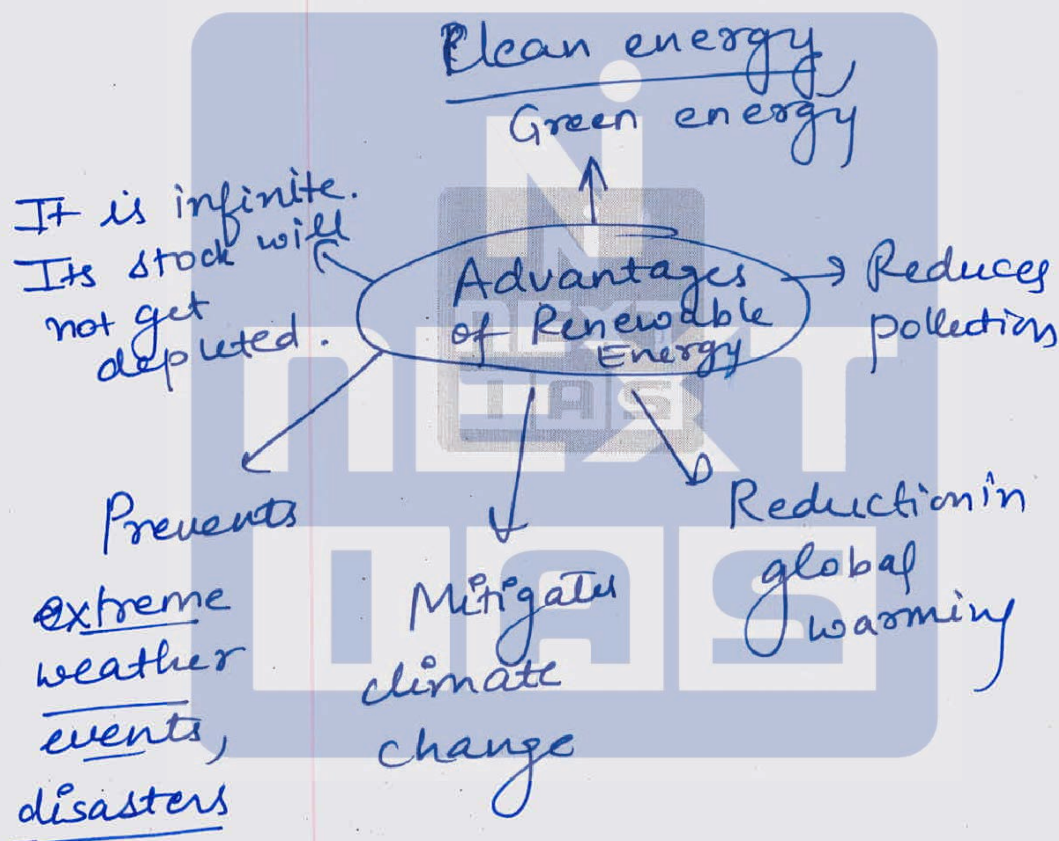 Clean energy,
Green energy
It is infinite.
Its stock will
not get
depleted.
Advantages
of Renewable
Energy
Reduces
pollection
Prevents
extreme
weather
events,
disasters
Mitigates
climate
change
Reduction in
global
warming
NEXT
IAS
NEXT
IAS